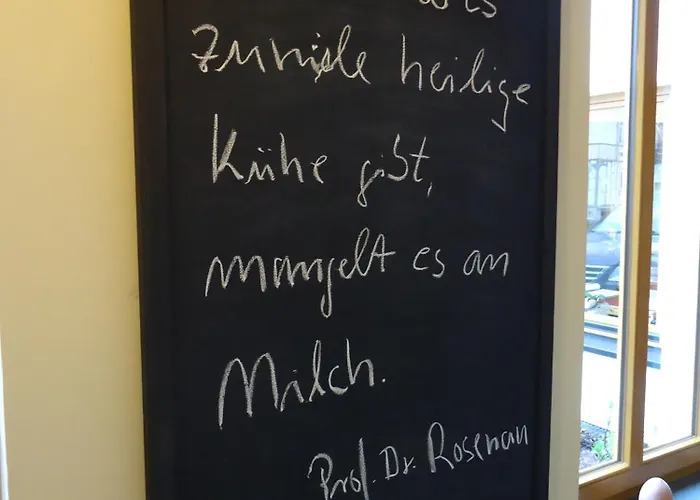 es
zuviele heilige
Kühe gibt,
mangelt es an
Milch.
Prof. Dr. Rosenau